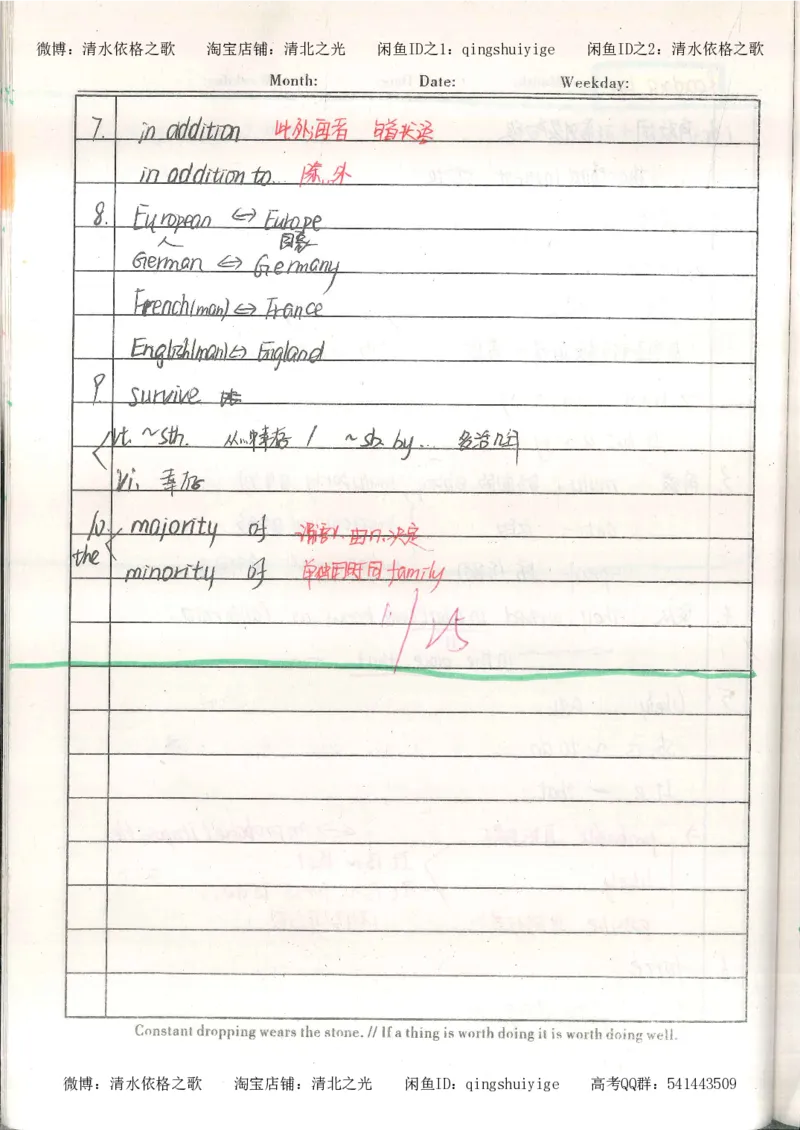 微博: 清水依格之歌 淘宝店铺: 清北之光 闲鱼ID之1: qingshuiyige 闲鱼ID之2: 清水依格之歌
Month: Date: Weekday:
7. in addition 此外/再看 句首状语
in addition to... 除..外
8. European <=> Europe
人 国家
German <=> Germany
French(man) <=> France
English(man) <=> England
9. survive
vt. ~ sth. 从..幸存 / ~ sb. by...
vi. 幸存
10. majority of 谓语 由n.决定
the
minority of 单独用时同family
1/25
Constant dropping wears the stone. // If a thing is worth doing it is worth doing well.
微博: 清水依格之歌 淘宝店铺: 清北之光 闲鱼ID: qingshuiyige 高考QQ群: 541443509